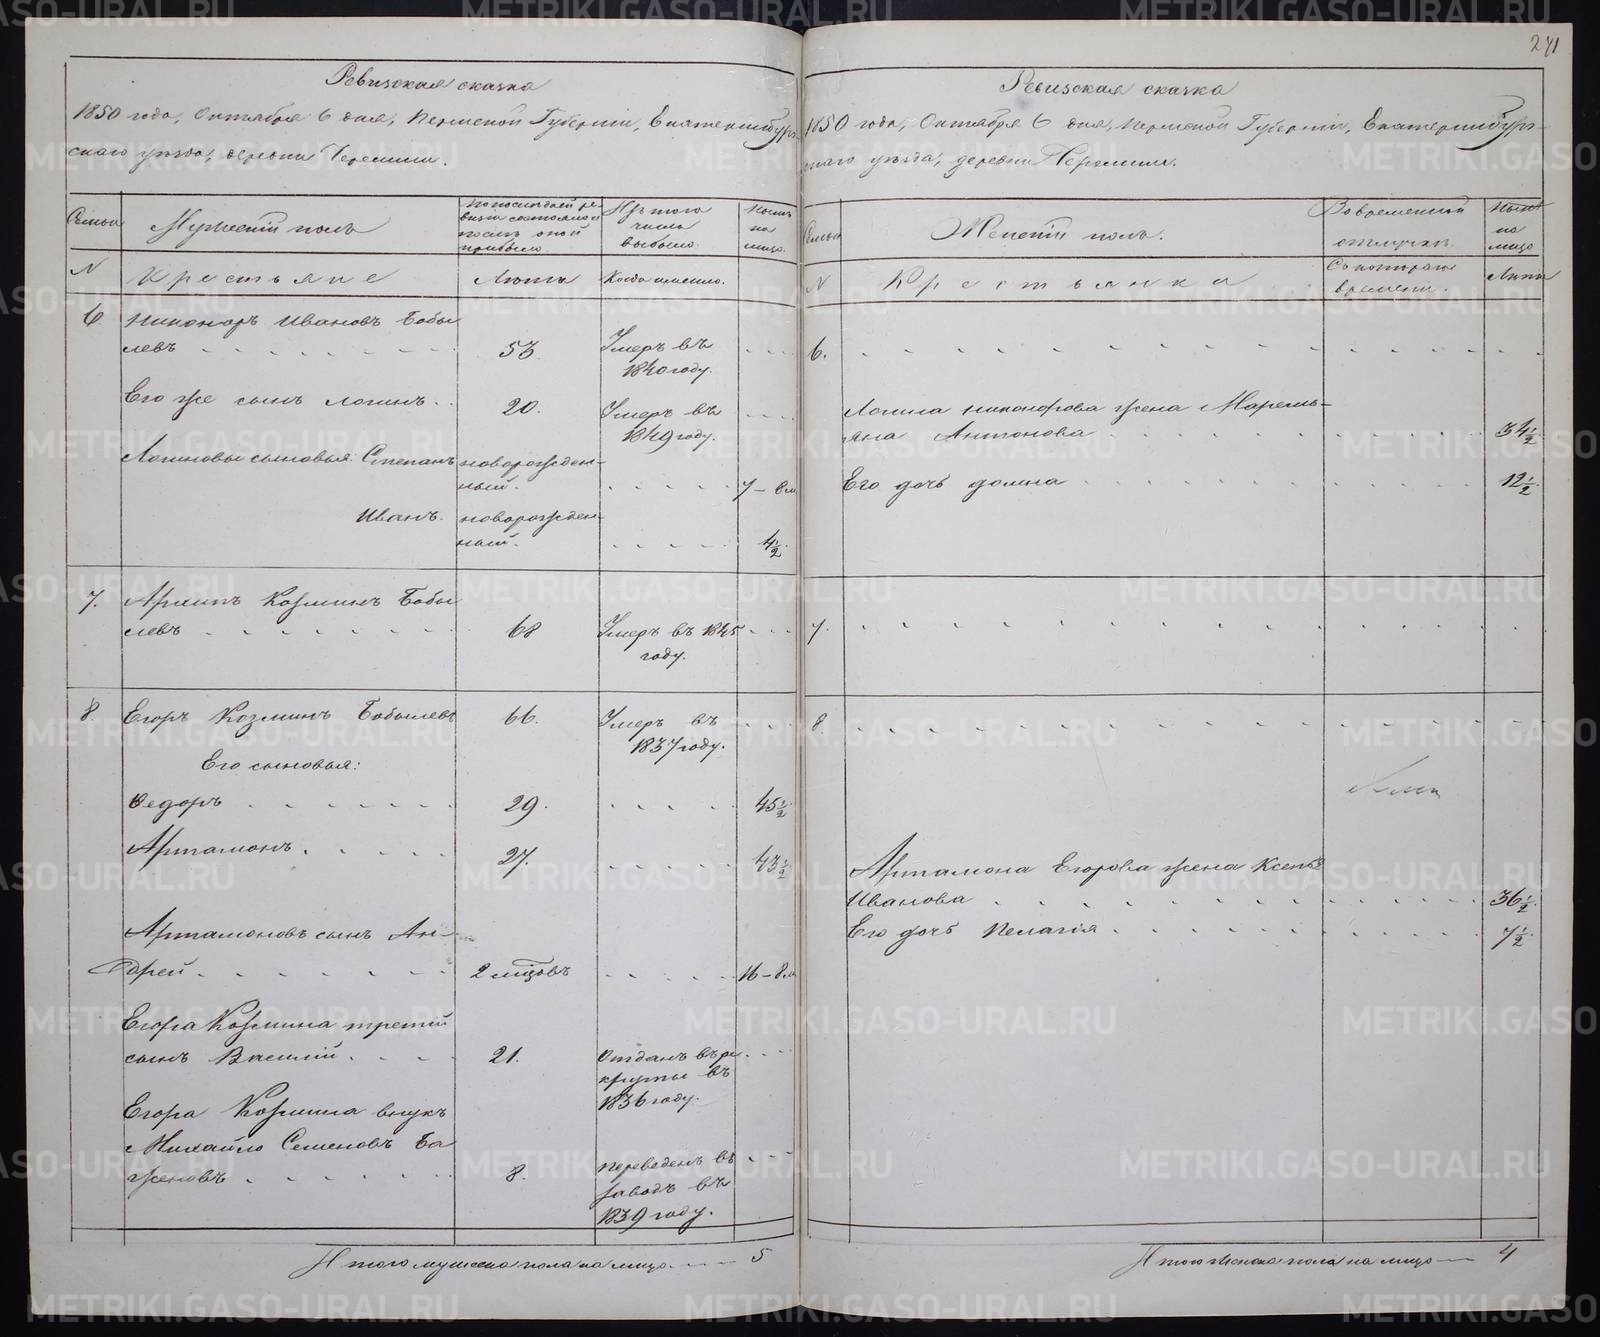 Ревизская сказка
1850 года, Октября 6 дня, Пермской Губернiи, Екатеринбург-
скаго уѣзда, деревни Черемши.
Семьи
Мужескiй полъ
По последней ре-
визiи состояло и
после оной
прибыло.
Изъ того
числа
выбыло.
Нынѣ
на
лицо.
N
Крестьяне
Лѣта
Когда именно.
6.
Никоноръ Ивановъ Бобы
левъ
53.
Умеръ въ
1840 году.
Его же сынъ Логинъ.
20.
Умеръ въ
1849 году.
Логиновы сыновья: Степанъ
новорожден-
ный.
7 - 8 м
Иванъ.
новорожден-
ный.
4 1/2.
7.
Архипъ Козминъ Бобы
левъ
68
Умеръ въ 1845
году.
8.
Егоръ Козминъ Бобылевъ
66.
Умеръ въ
1837 году.
Его сыновья:
Ѳедоръ
29.
45 1/2
Артамонъ.
27.
43 1/2
Артамоновъ сынъ Ан-
дрей
2 мѣсяцовъ
16 - 8 м
Егора Козмина третiй
сынъ Василiй
21.
Отданъ въ ре
круты въ
1836 году.
Егора Козмина внукъ
Михайло Семеновъ Ба
женовъ
8.
Переведенъ въ
заводъ въ
1839 году.
Итого мужеска пола на лицо 5
271
Ревизская сказка
1850 года, Октября 6 дня, Пермской Губернiи, Екатеринбург-
скаго уѣзда, деревни Черемши.
Семьи
Женскiй полъ.
Во временной
отлучкѣ.
Нынѣ
на
лицо
N
Крестьянки
Съ котораго
времени.
Лѣта
6.
Логина Никонорова жена Маремь-
яна Антонова
34 1/2.
Его дочь Домна
12 1/2.
7.
8
Артамона Егорова жена Ксенья
Иванова
36 1/2.
Его дочь Пелагiя
7 1/2.
Итого женска пола на лицо 4
METRIKI.GASO-URAL.RU